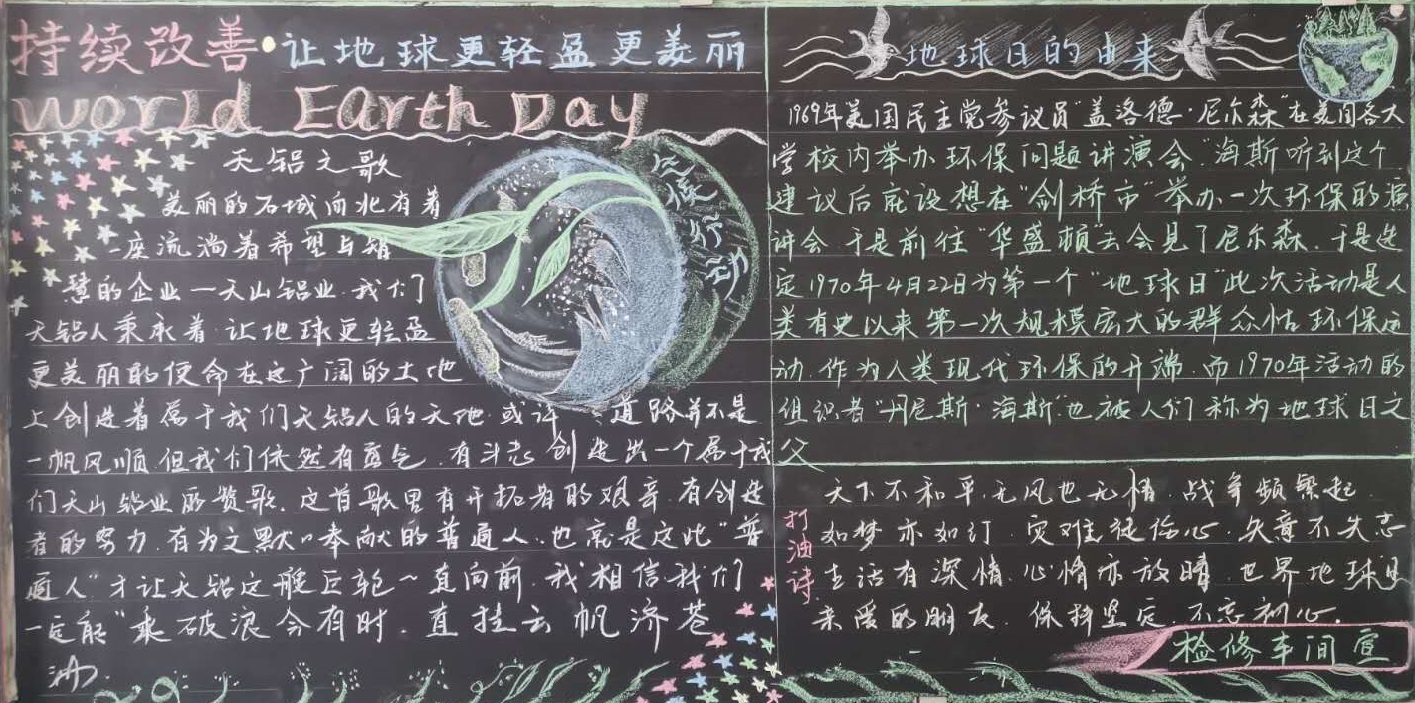 持续改善·让地球更轻盈更美丽
World Earth Day
天铝之歌
美丽的石城西北有着
一座流淌着希望与智
慧的企业一天山铝业.我们
天铝人秉承着让地球更轻盈
更美丽的使命在这广阔的土地
上创造着属于我们天铝人的天地.或许、道路并不是
一帆风顺.但我们依然有勇气.有斗志创造出一个属于我
们天山铝业的赞歌.这首歌里有开拓者的艰辛.有创造
者的努力.有为之默々奉献的普通人.也就是这些"普
通人"才让天铝这艘巨轮一直向前.我相信我们
一定能"乘破浪会有时.直挂云帆济苍
海.
环保行动
地球日的由来
1969年美国民主党参议员"盖洛德·尼尔森"在美国各大
学校内举办环保问题讲演会.海斯听到这个
建议后就设想在"剑桥市"举办一次环保的演
讲会.于是前往"华盛顿"去会见了尼尔森.于是选
定1970年4月22日为第一个"地球日"此次活动是人
类有史以来第一次规模宏大的群众性环保运
动.作为人类现代环保的开端.而1970年活动的
组织者"丹尼斯·海斯"也被人们称为地球日之
父
打油诗
天下不和平.无风也无情.战争频繁起.
如梦亦如幻.灾难徒伤心.失意不失志
生活有深情.心情亦放晴.世界地球日
亲爱的朋友.保持坚定.不忘初心.
检修车间宣